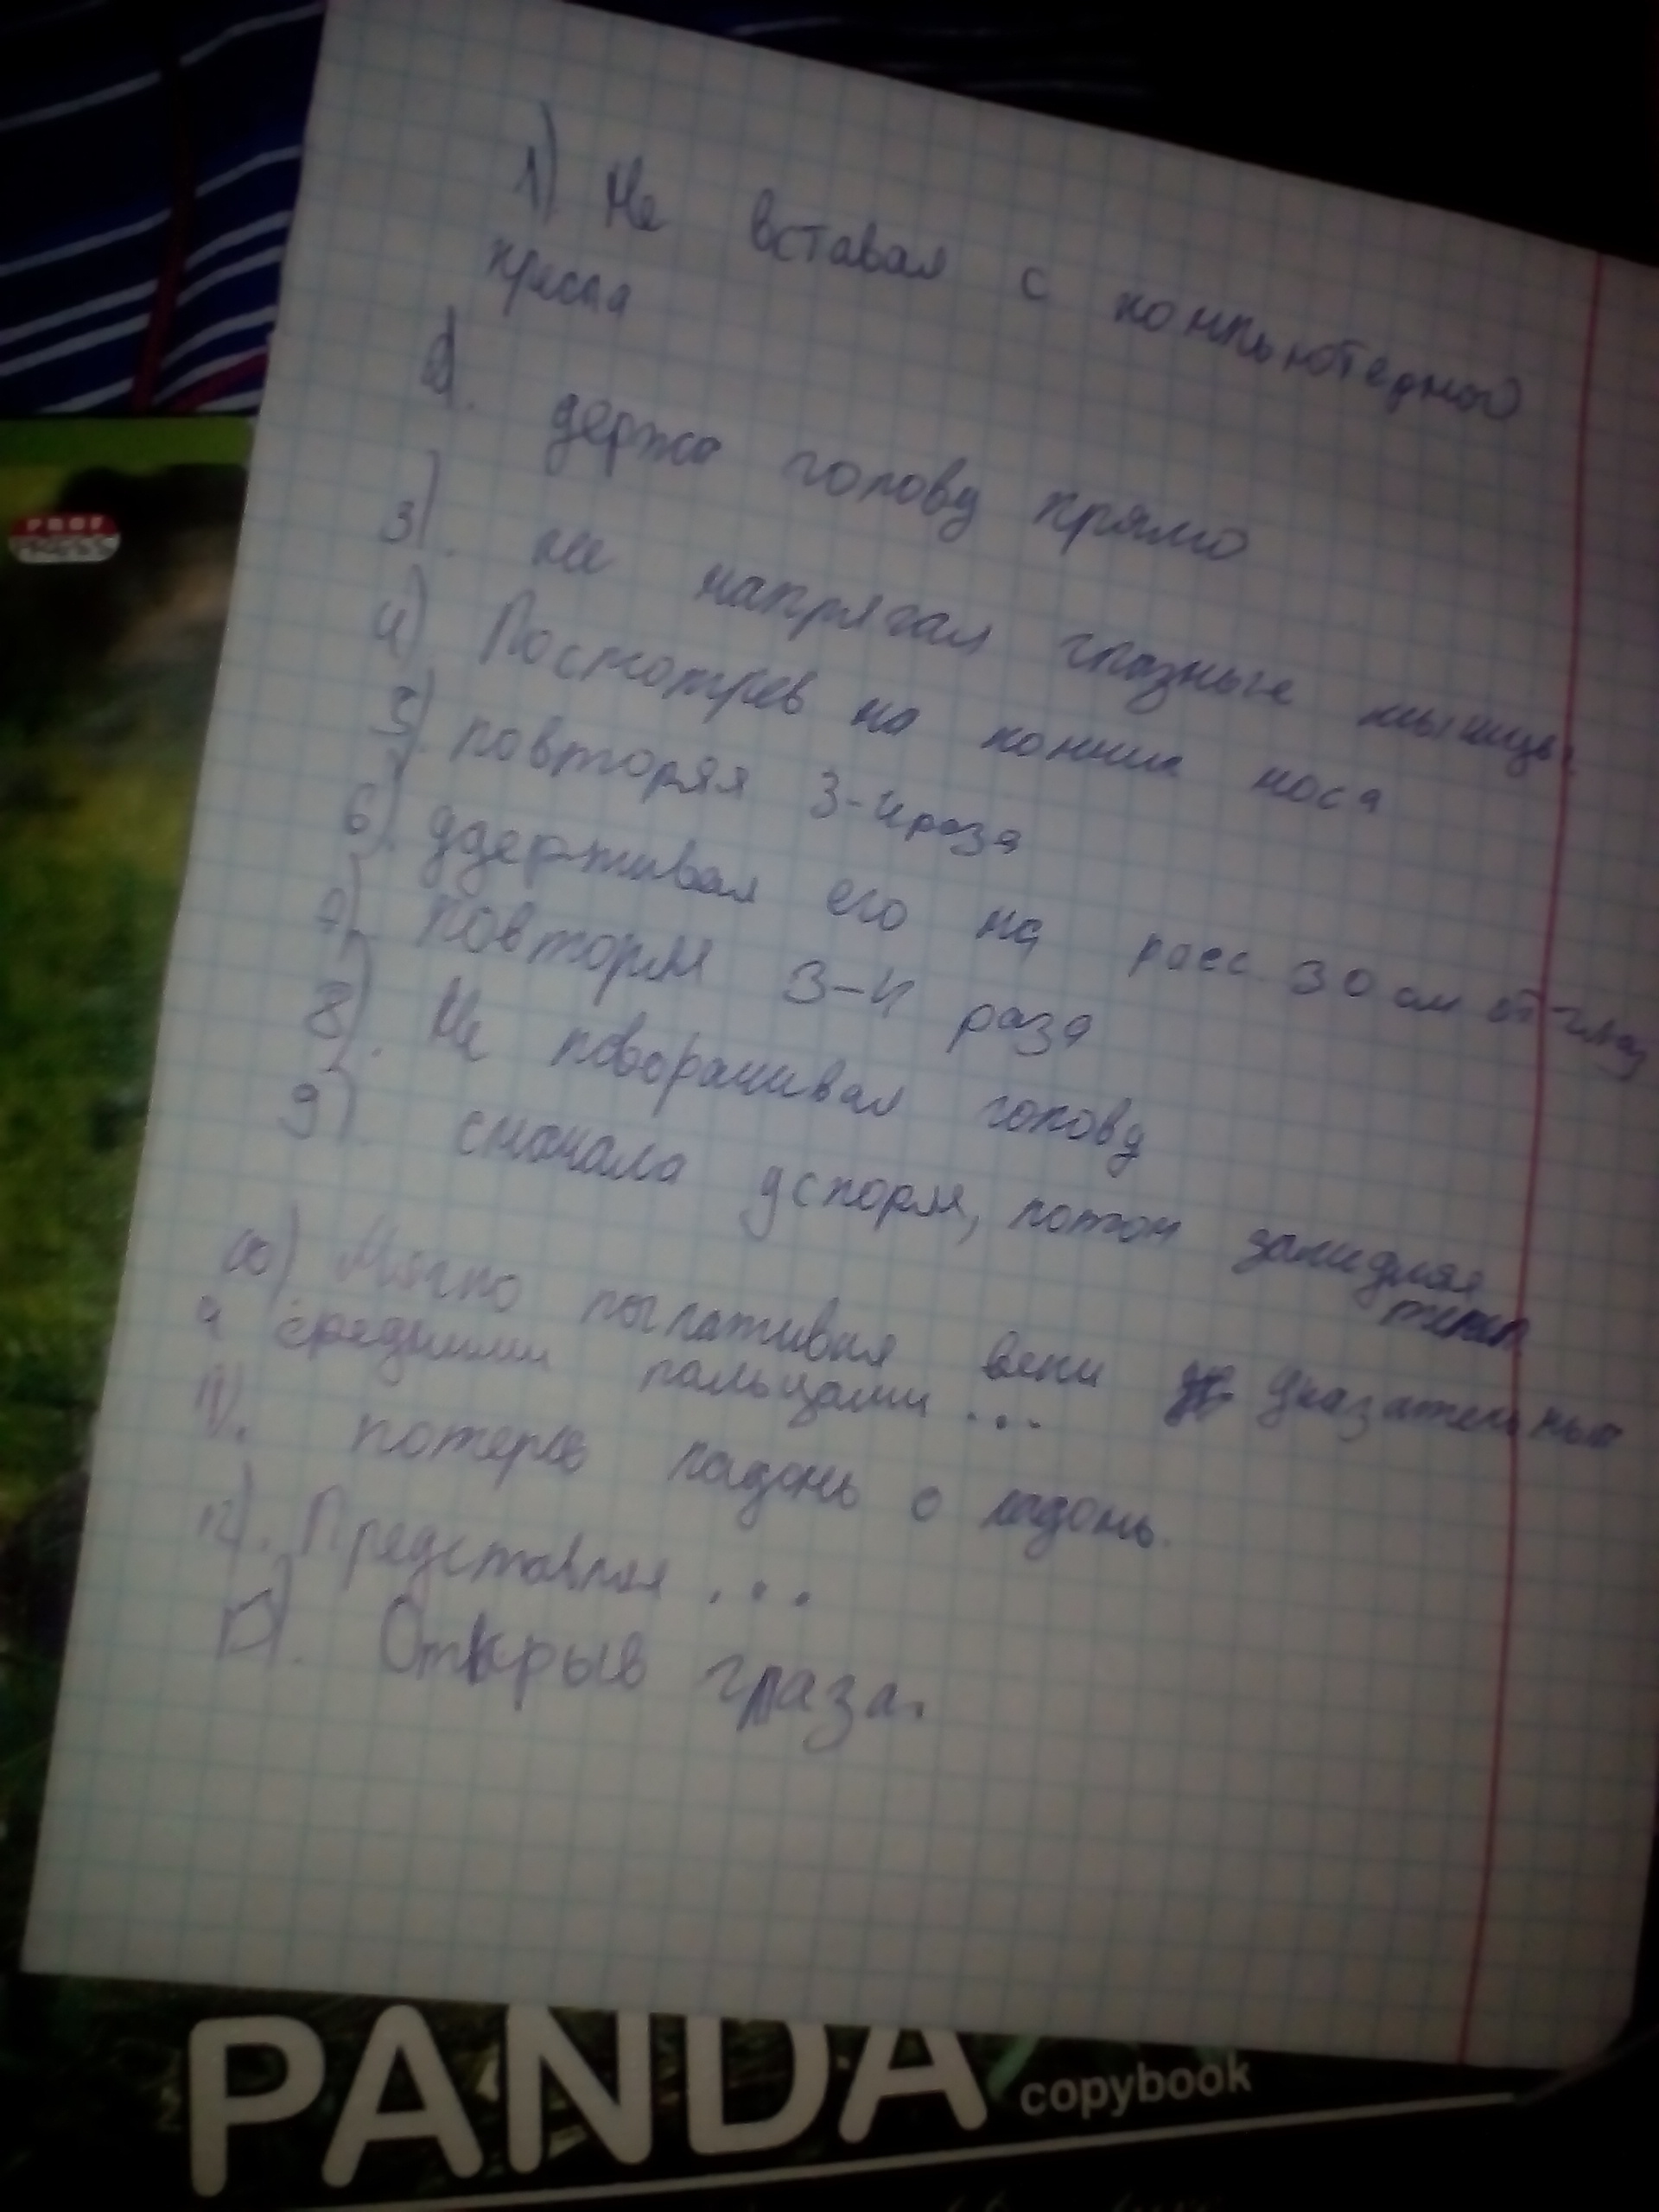 1) Не вставая с компьютерного
кресла
2). держа голову прямо
3). не напрягая глазные мышцы.
4) Посмотрев на кончик носа
5). повторяя 3-4 раза
6). удерживая его на расс. 30 см от глаз
7). повторяя 3-4 раза
8). Не поворачивая голову
9). сначала ускоряя, потом замедляя
темп
10) Мягко поглаживая веки указательными
и средними пальцами ...
11). потерев ладонь о ладонь.
12). Представляя ...
13). Открыв глаза.
PROF
PRESS
PANDA copybook